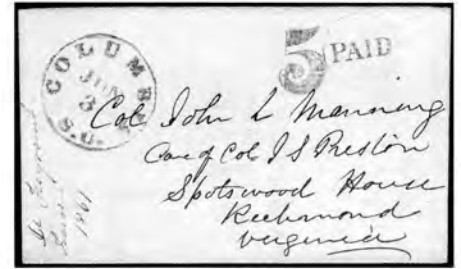 COLUMBIA
JUN
3
S.C.
5 PAID
Col John L Manning
Care of Col J S Preston
Spotswood House
Richmond
Virginia
1861